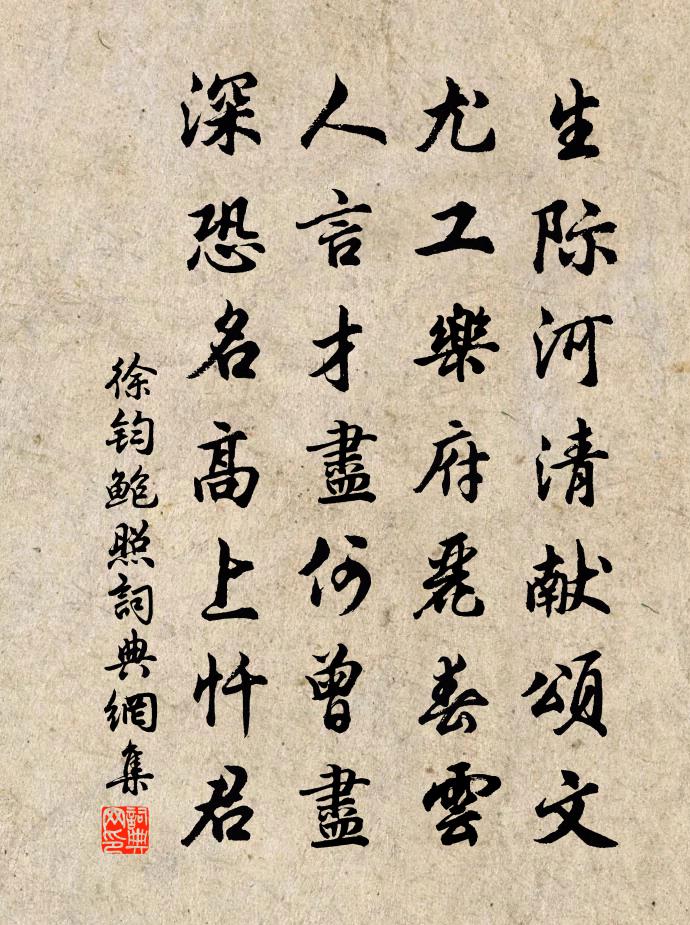 生际河清献頌文
尤工樂府麗春雲
人言才盡何曾盡
深恐名高上忤君
徐鈞鮑照詞典網集
詞典網印